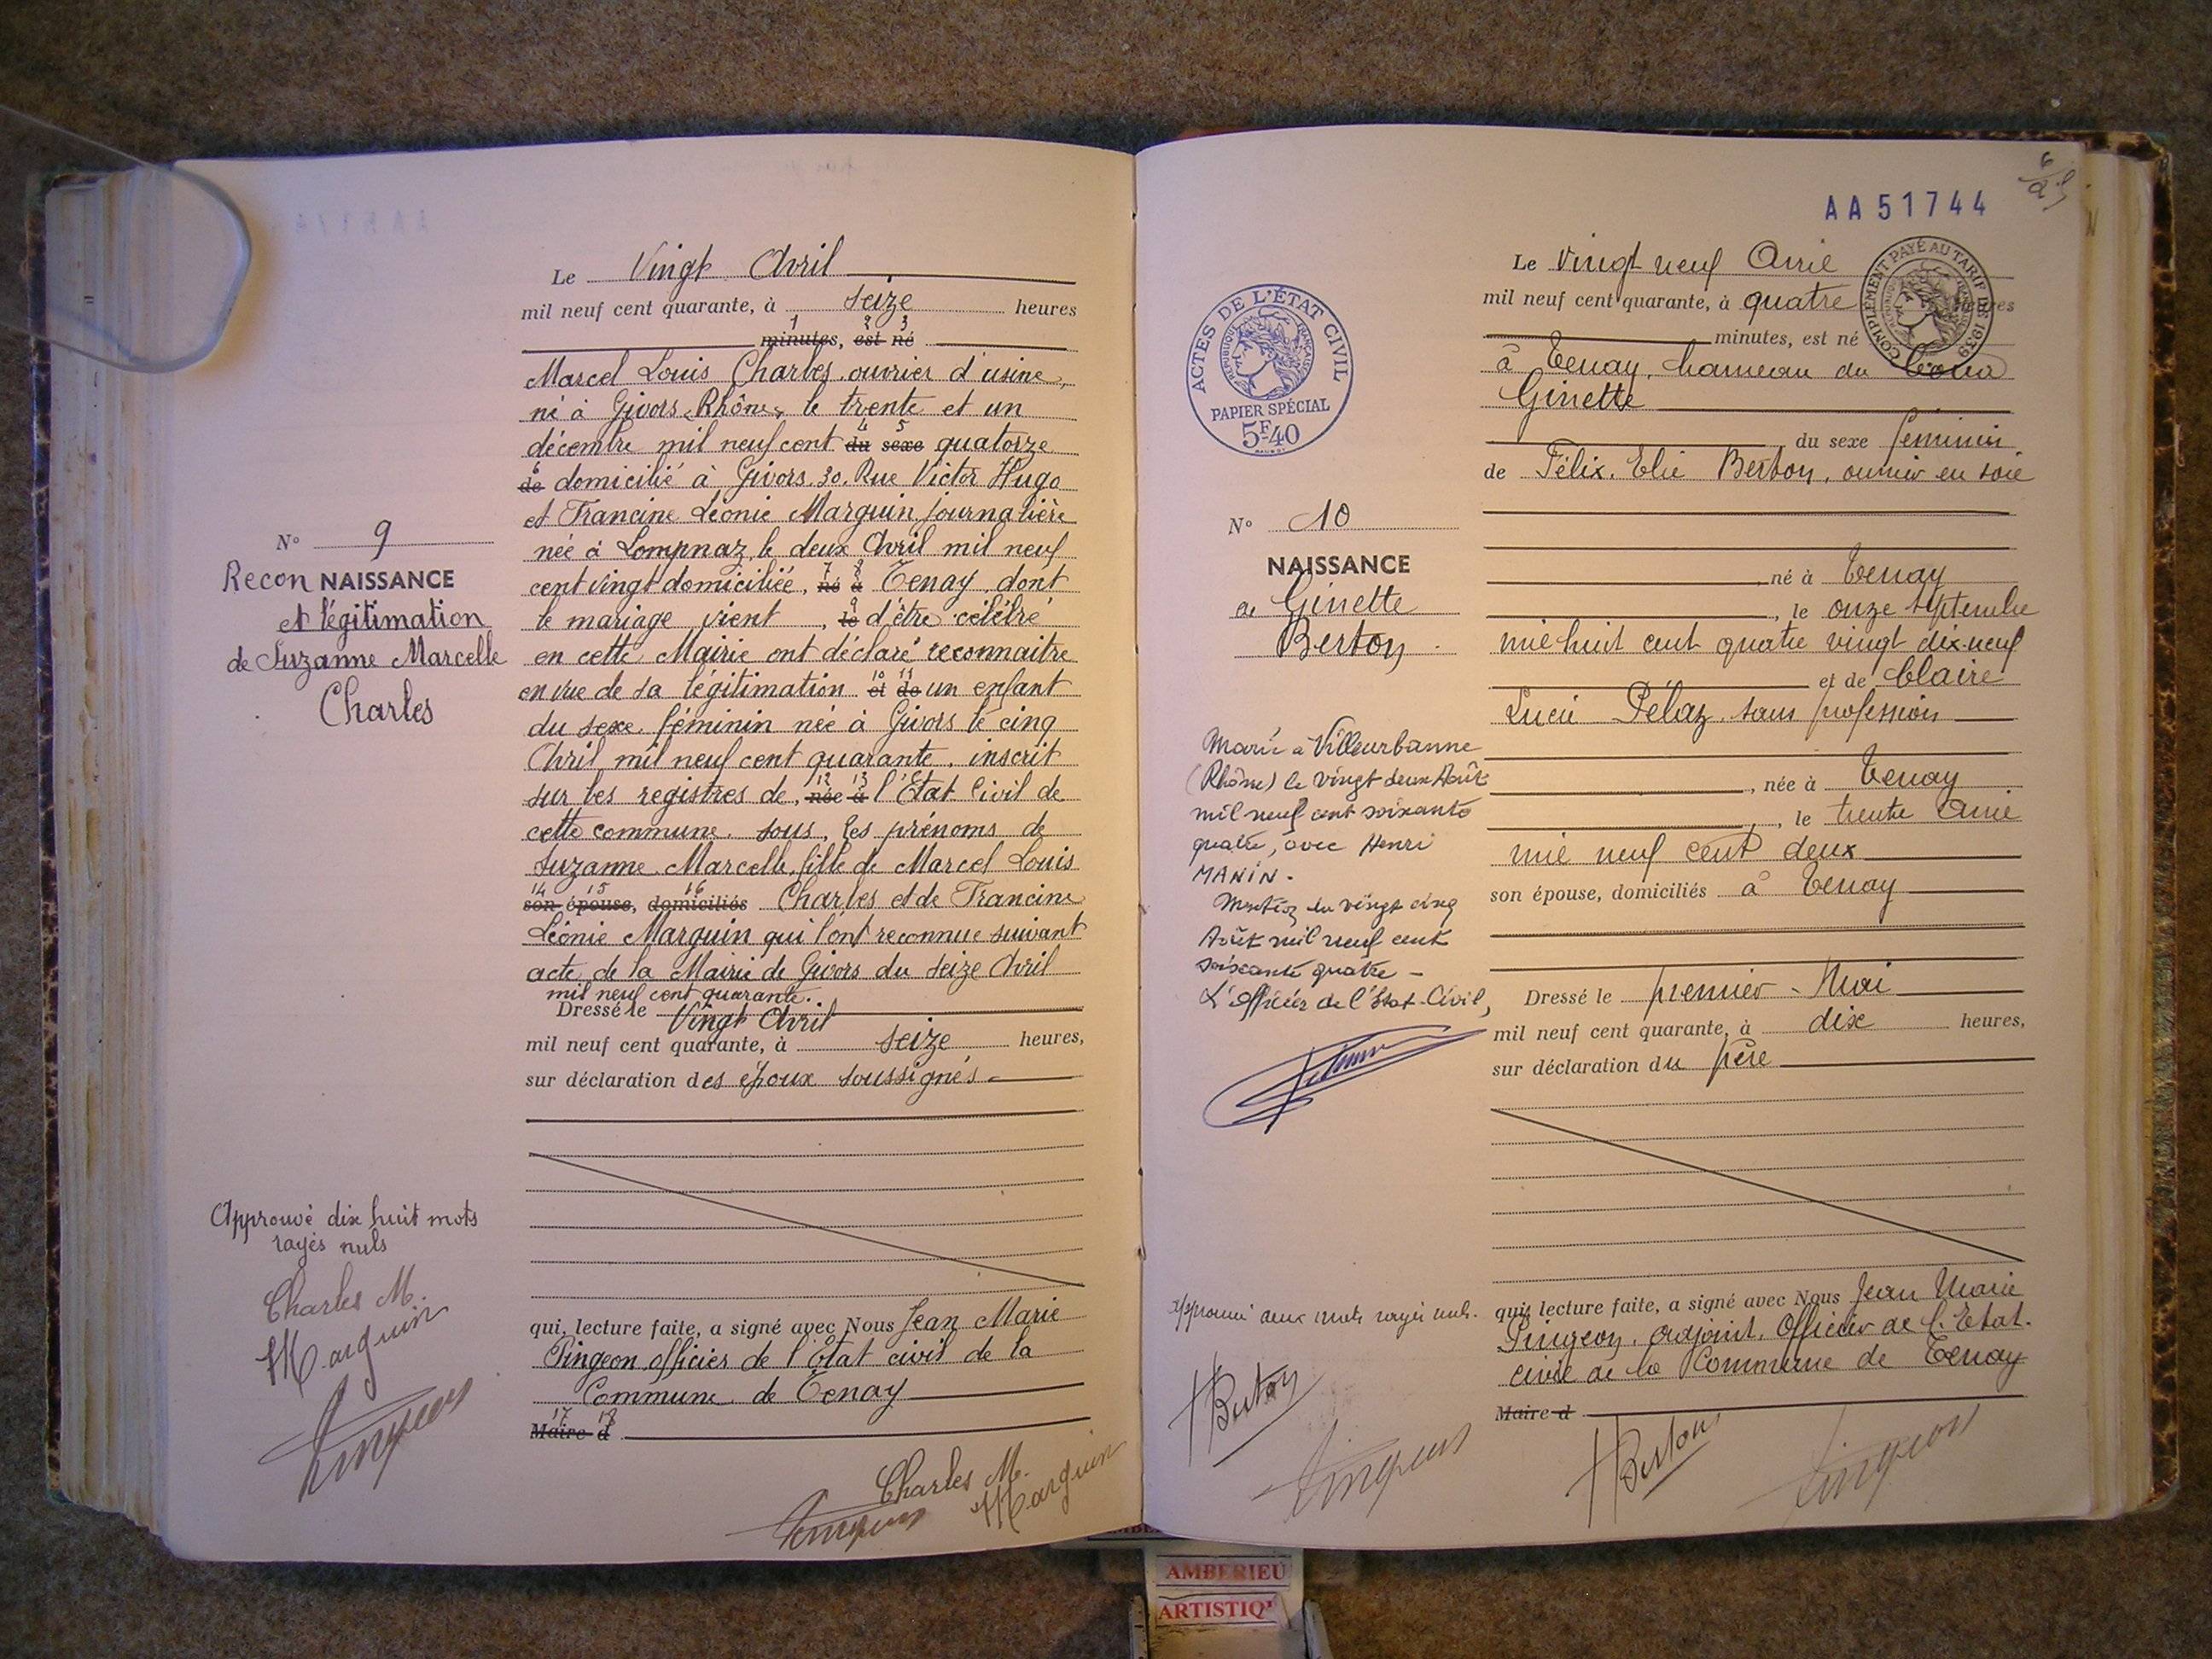 Le Vingt Avril
mil neuf cent quarante, à seize heures
1 2 3
minutes, est né
Marcel Louis Charles, ouvrier d'usine,
né à Givors, Rhône, le trente et un
4 5
décembre mil neuf cent du sexe quatorze
6
de domicilié à Givors, 30, Rue Victor Hugo
et Francine Léonie Marguin journalière
née à Lompnaz, le deux Avril mil neuf
7 8
cent vingt domiciliée, né à Tenay, dont
9
le mariage vient, le d'être célébré
en cette Mairie ont déclaré reconnaitre
10 11
en vue de sa légitimation et de un enfant
du sexe féminin née à Givors le cinq
Avril mil neuf cent quarante, inscrit
12 13
sur les registres de, née à l'État Civil de
cette commune, sous, les prénoms de
Suzanne Marcelle, fille de Marcel Louis
14 15 16
son épouse, domiciliés Charles et de Francine
Léonie Marguin qui l'ont reconnue suivant
acte de la Mairie de Givors du seize Avril
mil neuf cent quarante.
Dressé le Vingt Avril
mil neuf cent quarante, à seize heures,
sur déclaration des époux soussignés
qui, lecture faite, a signé avec Nous Jean Marie
Pingeon, officier de l'État civil de la
Commune de Tenay
17 18
Maire d
Charles M.
Marguin
Pingeon
N° 9
Recon NAISSANCE
et légitimation
de Suzanne Marcelle
Charles
Approuvé dix huit mots
rayés nuls
Charles M.
Marguin
Pingeon
AA51744
COMPLÉMENT PAYÉ AU TARIF DE 1939
ACTES DE L'ÉTAT CIVIL
RÉPUBLIQUE FRANÇAISE
PAPIER SPÉCIAL
5F40
Le vingt neuf Avril
mil neuf cent quarante, à quatre heures
minutes, est né
à Tenay, hameau du
Ginette
, du sexe féminin
de Félix, Elie Berton, ouvrier en soie
né à Tenay
, le onze septembre
mil huit cent quatre vingt dix-neuf
et de Claire
Lucie Pélaz, sans profession
, née à Tenay
, le trente Avril
mil neuf cent deux
son épouse, domiciliés à Tenay
Dressé le premier Mai
mil neuf cent quarante, à dix heures,
sur déclaration du père
qui, lecture faite, a signé avec Nous Jean Marie
Pingeon, adjoint, Officier de l'Etat-
civil de la Commune de Tenay
Maire d
Berton
Pingeon
N° 10
NAISSANCE
de Ginette
Berton
Marié à Villeurbanne
(Rhône) le vingt deux Août
mil neuf cent soixante
quatre, avec Henri
MANIN.
Mention du vingt cinq
Août mil neuf cent
soixante quatre -
L'officier de l'État-Civil,
Approuvé deux mots rayés nuls.
Berton
Pingeon
AMBERIEU
ARTISTIQ